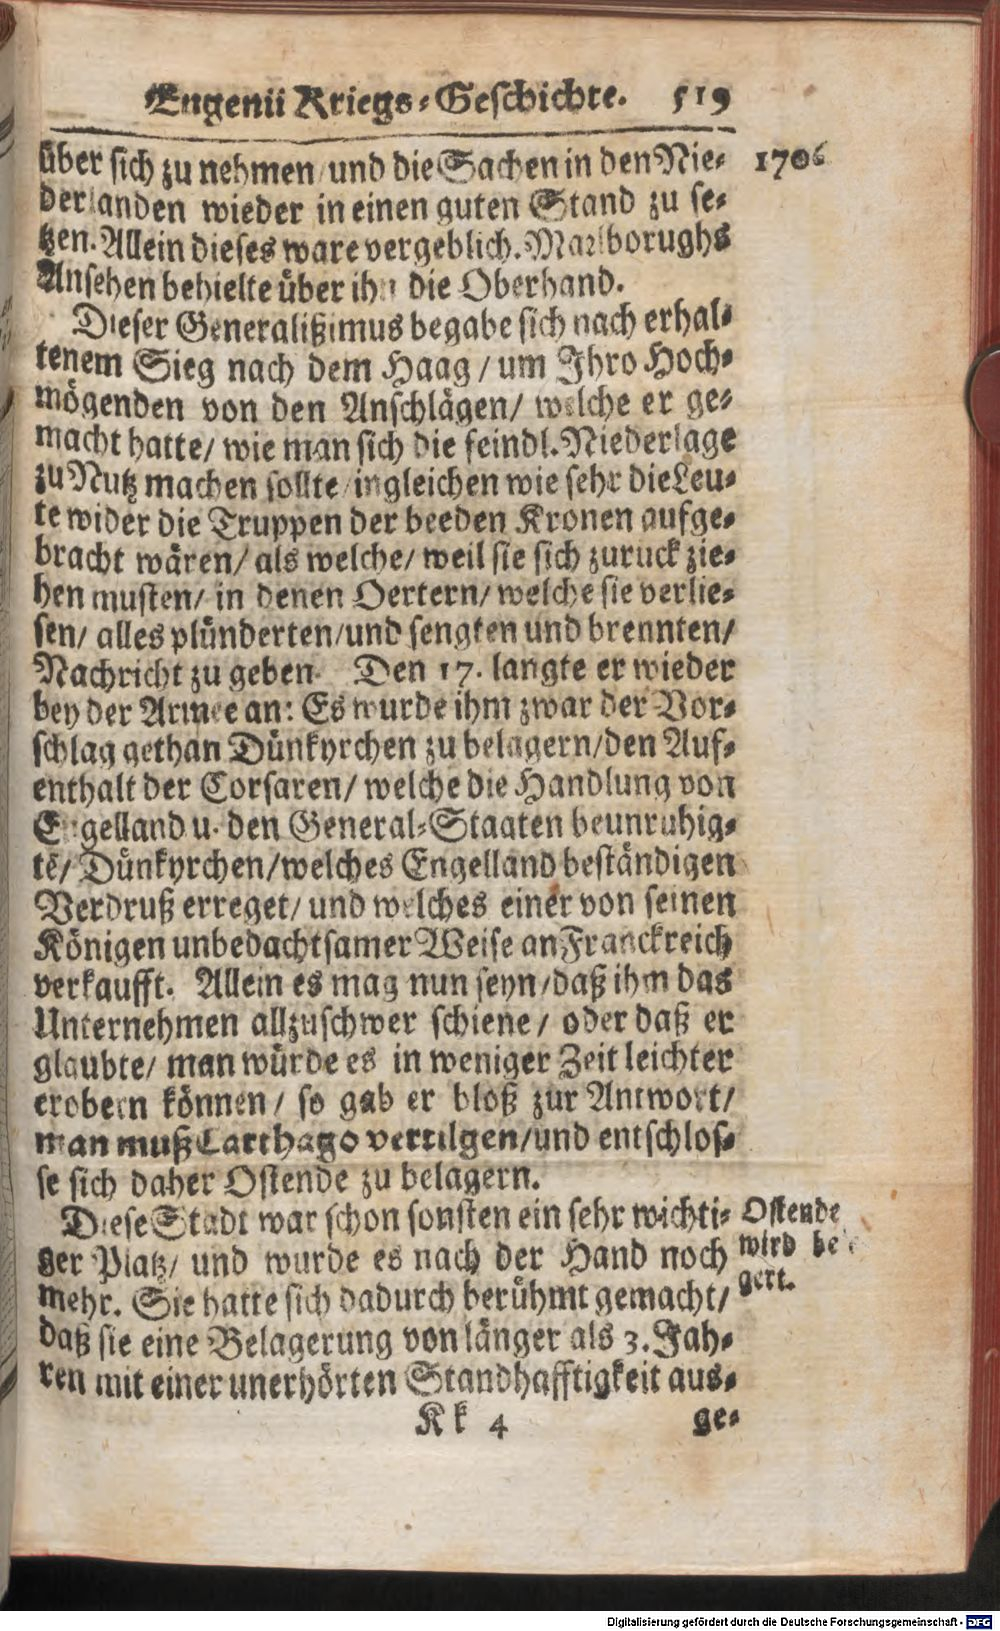 Eugenii Kriegs-Geschichte. 519
1706
über sich zu nehmen/ und die Sachen in den Nie-
derlanden wieder in einen guten Stand zu se-
tzen. Allein dieses ware vergeblich. Marlborughs
Ansehen behielte über ihn die Oberhand.
Dieser Generalißimus begabe sich nach erhal-
tenem Sieg nach dem Haag / um Ihro Hoch-
mögenden von den Anschlägen/ welche er ge-
macht hatte/ wie man sich die feindl. Niederlage
zu Nutz machen sollte/ ingleichen wie sehr die Leu-
te wider die Truppen der beeden Kronen aufge-
bracht wären/ als welche/ weil sie sich zuruck zie-
hen musten/ in denen Oertern/ welche sie verlie-
sen/ alles plünderten/ und sengten und brennten/
Nachricht zu geben. Den 17. langte er wieder
bey der Armee an: Es wurde ihm zwar der Vor-
schlag gethan Dünkyrchen zu belagern/ den Auf-
enthalt der Corsaren/ welche die Handlung von
Engelland u. den General-Staaten beunruhig-
tē/ Dünkyrchen/ welches Engelland beständigen
Verdruß erreget/ und welches einer von seinen
Königen unbedachtsamer Weise an Franckreich
verkaufft. Allein es mag nun seyn/ daß ihm das
Unternehmen allzuschwer schiene / oder daß er
glaubte/ man würde es in weniger Zeit leichter
erobern können / so gab er bloß zur Antwort/
man muß Carthago vertilgen/ und entschlos-
se sich daher Ostende zu belagern.
Diese Stadt war schon sonsten ein sehr wichti-
ger Platz/ und wurde es nach der Hand noch
mehr. Sie hatte sich dadurch berühmt gemacht/
daß sie eine Belagerung von länger als 3. Jah-
ren mit einer unerhörten Standhafftigkeit aus-
Ostende
wird be
gert.
Kk 4 ge-
Digitalisierung gefördert durch die Deutsche Forschungsgemeinschaft - DFG